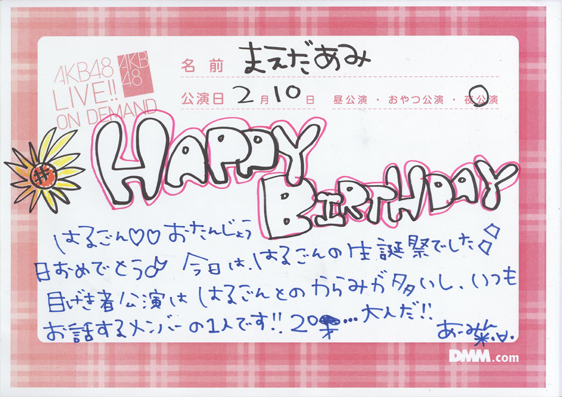 AKB48
LIVE!!
ON DEMAND
AKB
48
名前 まえだあみ
公演日 2月10日 昼公演・おやつ公演・夜公演
HAPPY
BIRTHDAY
はるごん♡♡おたんじょう
日おめでとう♪ 今日は、はるごんの生誕祭でした
目げき者公演は はるごんとのからみが多いし、いつも
お話するメンバーの1人です!! 20...大人だ!! あーみ
DMM.com